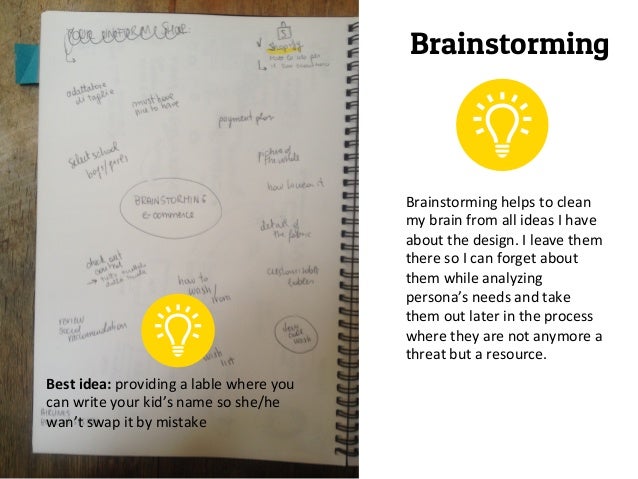 YOUR UNIFORM SHOP:
Shopify
Brainstorming
odattatore
di taglie
must have
nice to have
payment plan
select school
boys/girls
picture of
the whole
how to wear it
BRAINSTORMING
e-commerce
detail of
the fabric
check out
control
customizable
lables
how to
wash/
iron
REVIEW
SOCIAL
RECOMMENDATION
wish
list
wash
Brainstorming helps to clean
my brain from all ideas I have
about the design. I leave them
there so I can forget about
them while analyzing
persona’s needs and take
them out later in the process
where they are not anymore a
threat but a resource.
Best idea: providing a lable where you
can write your kid’s name so she/he
wan’t swap it by mistake